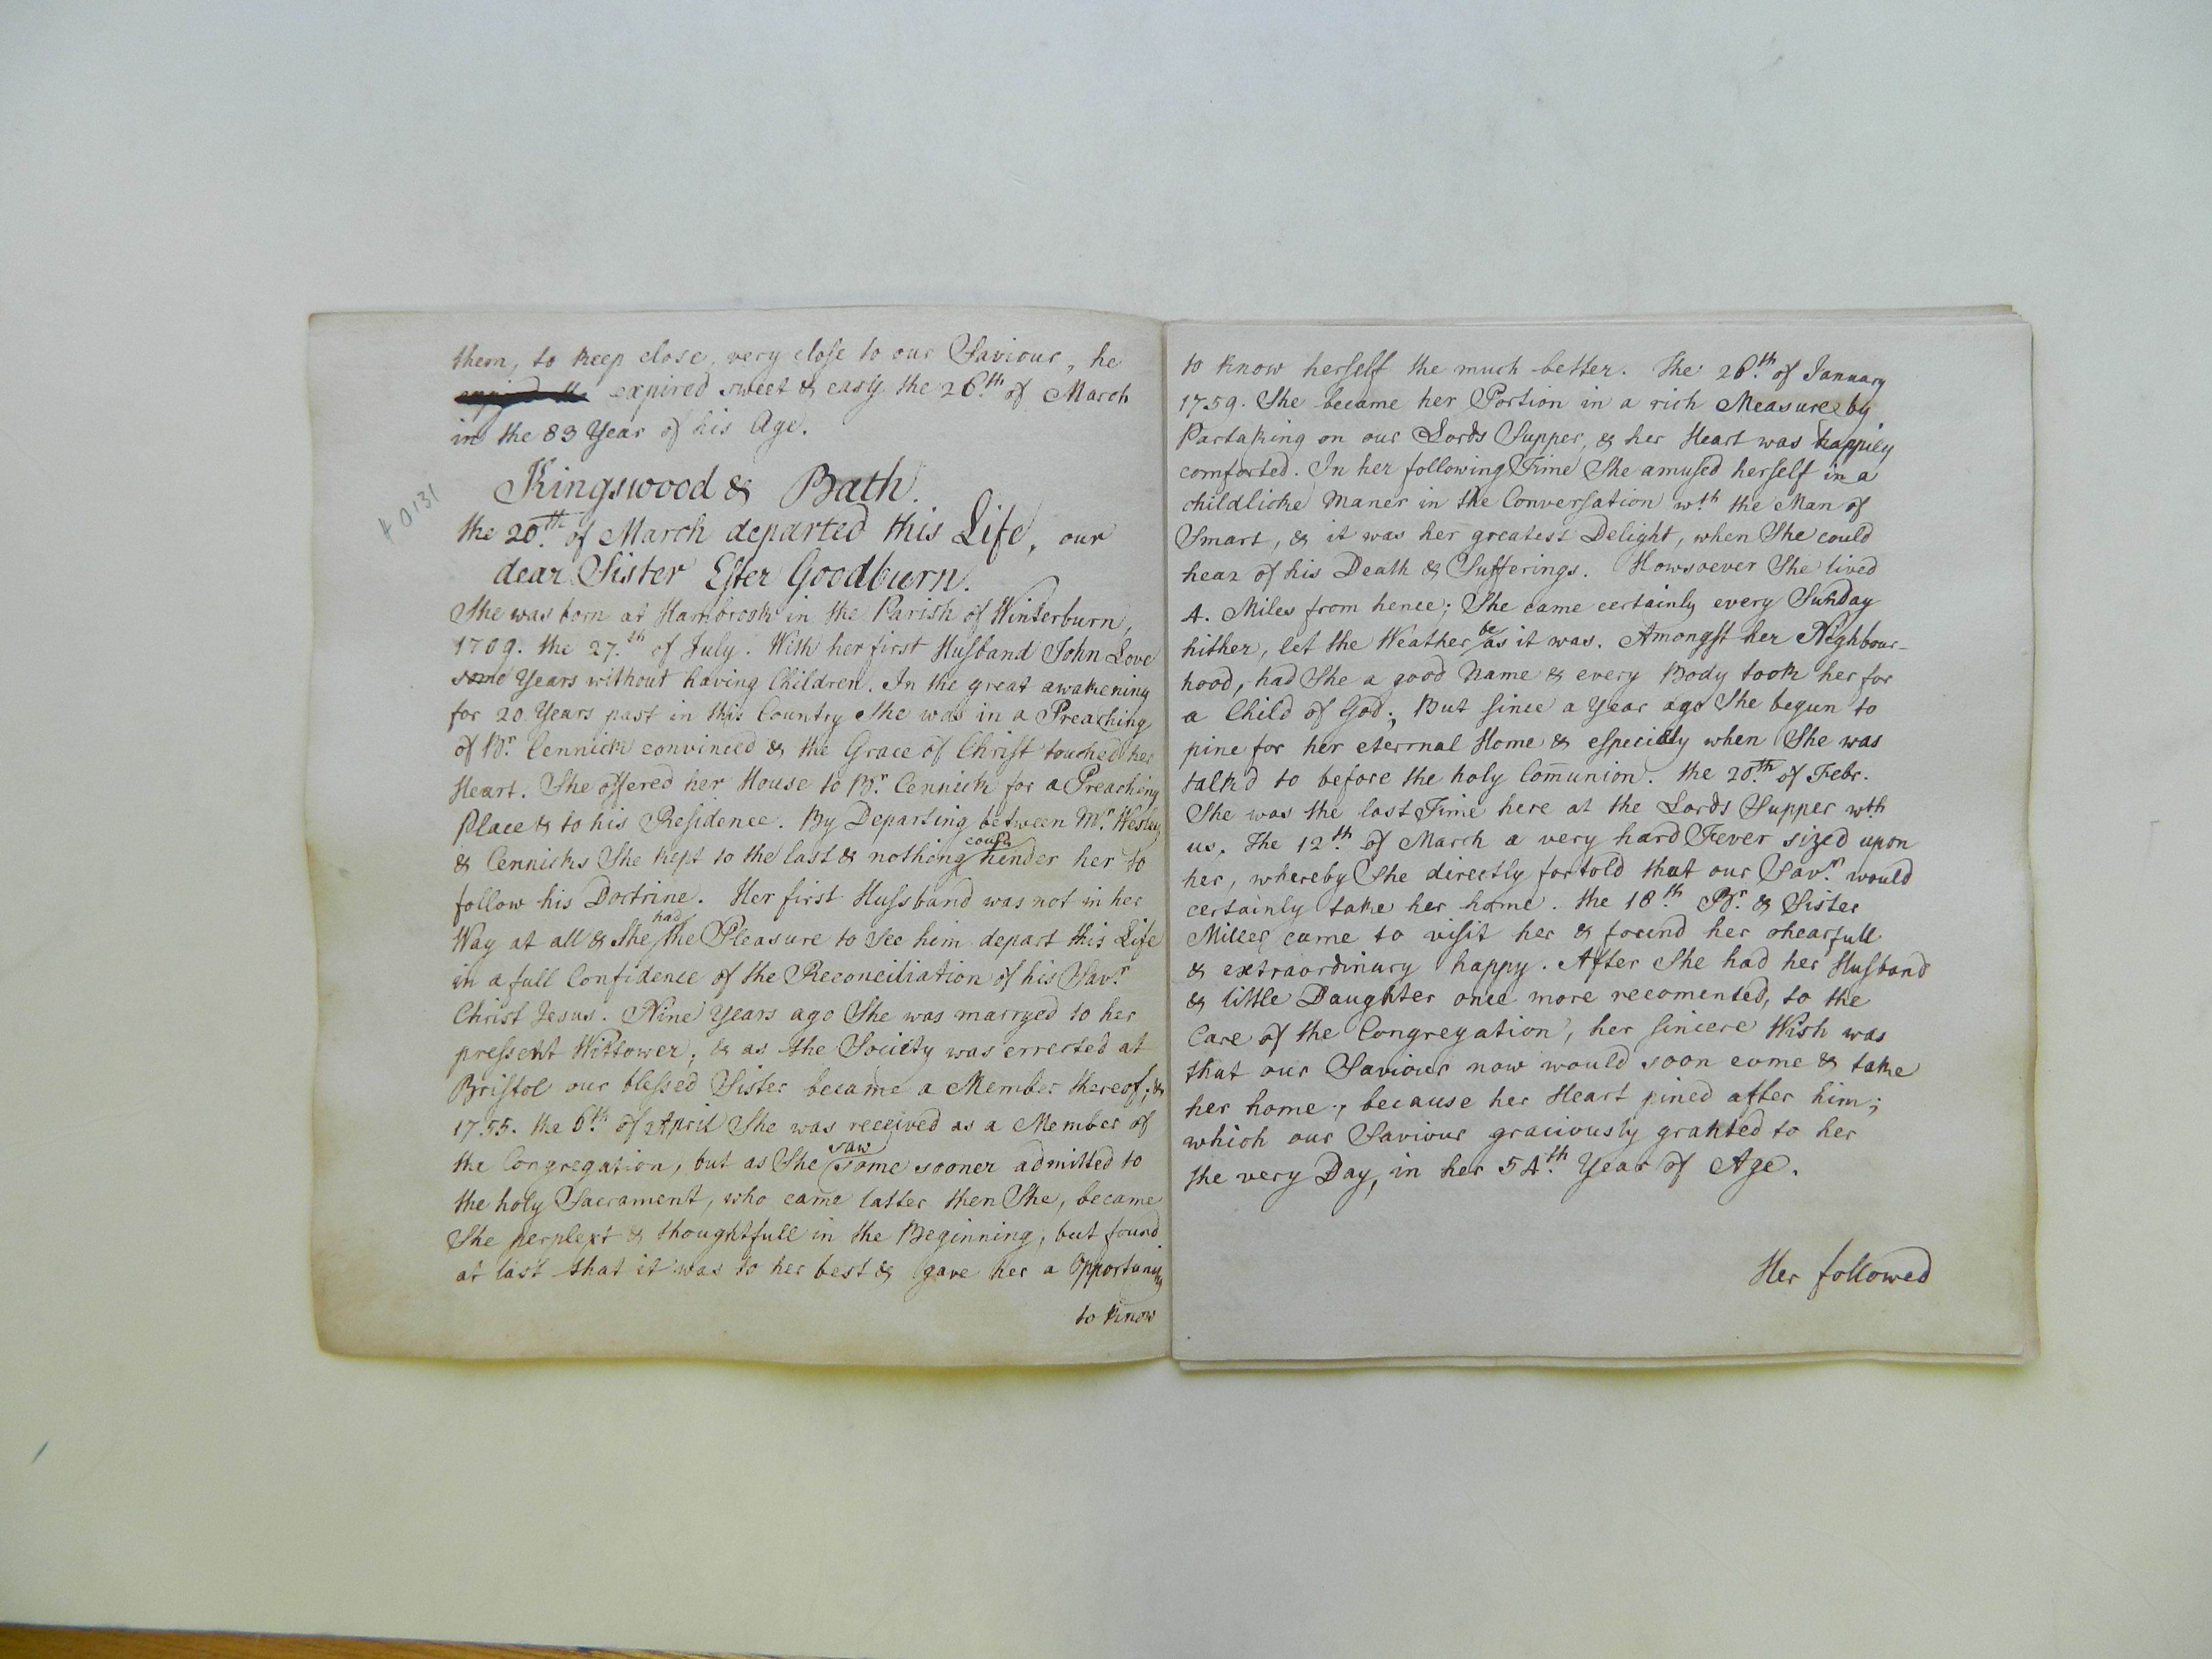 them, to keep close, very close to our Saviour, he
expired sweet & easy the 26.th of March
in the 83 Year of his Age.
Kingswood & Bath.
the 20.th of March departed this Life, our
dear Sister Ester Goodburn.
She was born at Hambrook in the Parish of Winterburn,
1709. the 27.th of July. With her first Husband John Love
some Years without having Children. In the great awakening
for 20 Years past in this Country she was in a Preaching
of Br. Cennick convinced & the Grace of Christ touched her
Heart. She offered her House to Br. Cennick for a Preaching
Place & to his Residence. By Departing between Mr. Wesley
& Cennicks She kept to the last & nothing could hender her to
follow his Doctrine. Her first Hussband was not in her
Way at all & She had the Pleasure to see him depart this Life
in a full Confidence of the Reconciliation of his Savr.
Christ Jesus. Nine Years ago She was marryed to her
pressent Wittower; & as the Society was errected at
Bristol our blessed Sister became a Member thereof; &
1755. the 6.th of April She was received as a Member of
the Congregation, but as She saw some sooner admitted to
the holy Sacrament, who came latter then She, became
She perplext & thoughtfull in the Beginning, but found
at last that it was to her best & gave her a Opportunity
to know
to know herself the much better. The 26.th of January
1759. She became her Portion in a rich Measure by
Partaking on our Lords Supper, & her Heart was happily
comforted. In her following Time She amused herself in a
childlicke Maner in the Conversation wth the Man of
Smart, & it was her greatest Delight, when She could
hear of his Death & Sufferings. Howsoever She lived
4. Miles from hence; She came certainly every Sunday
hither, let the Weather be as it was. Amongst her Nighbour-
hood, had She a good Name & every Body took her for
a Child of God; But since a Year ago She begun to
pine for her eterrnal Home & especially when She was
talk'd to before the holy Com̄union. the 20.th of Febr.
She was the last Time here at the Lords Supper wth
us. The 12.th of March a very hard Fever sized upon
her, whereby She directly fortold that our Savr. would
certainly take her home. the 18.th Br. & Sister
Miller came to visit her & found her chearfull
& extraordinary happy. After She had her Husband
& little Daughter once more recomented, to the
Care of the Congregation, her sincere Wish was
that our Saviour now would soon come & take
her home; because her Heart pined after him;
which our Saviour graciously granted to her
the very Day, in her 54.th Year of Age.
Her followed